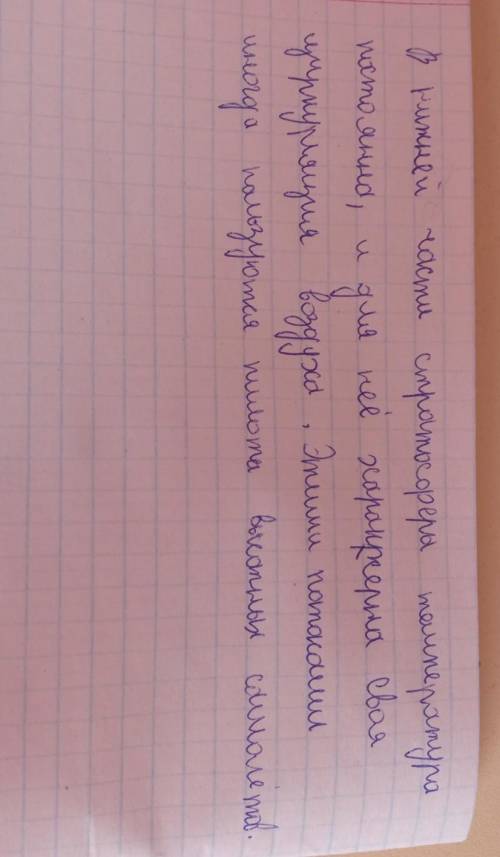 В нижней части стратосферы температура
постоянна, и для неё характерна своя
циркуляция воздуха. Этими потоками
иногда пользуются пилоты высотных самолётов.